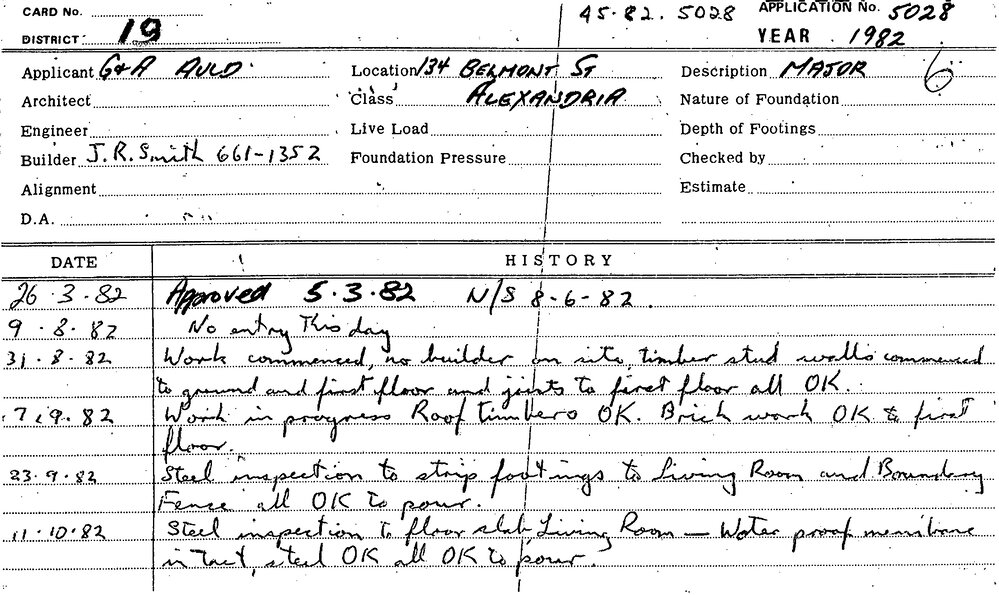 CARD No. 45-82. 5028 APPLICATION No. 5028
DISTRICT 19 YEAR 1982
Applicant G & A AULD Location 134 BELMONT ST Description MAJOR 6
Architect Class ALEXANDRIA Nature of Foundation
Engineer Live Load Depth of Footings
Builder J.R. Smith 661-1352 Foundation Pressure Checked by
Alignment Estimate
D.A.
DATE HISTORY
26.3.82 Approved 5.3.82 N/S 8-6-82.
9.8.82 No entry this day
31.8.82 Work commenced, no builder on site, timber stud walls commenced
to ground and first floor and joists to first floor all OK.
7.9.82 Work in progress Roof timbers OK. Brick work OK to first
floor.
23.9.82 Steel inspection to strip footings to Living Room and Boundary
Fence all OK to pour.
11.10.82 Steel inspection to floor slab, Living Room — Water proof membrane
in tact, steel OK all OK to pour.